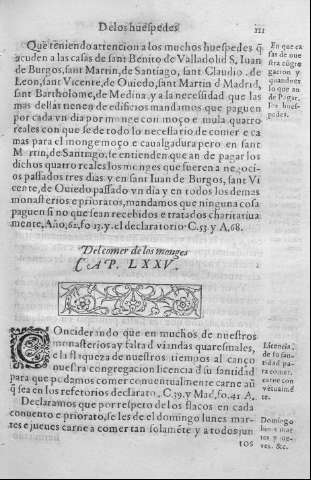 De los huespedes
111
Que teniendo attencion a los muchos huespedes q̃
acuden a las casas de sant Benito de Valladolid S. Iuan
de Burgos, sant Martin, de Santiago, sant Claudio, de
Leon, sant Vicente, de Ouiedo, sant Martin d̃ Madrid,
sant Bartholome, de Medina, y a la necessidad que las
mas dellas tienen de edificios mandamos que paguen
por cada vn dia por monge con moço e mula quatro
reales con que se de todo lo necessario de comer e ca
mas para el monge moço e caualgadura pero en sant
Martin, de Santiago, se entienden que an de pagar los
dichos quatro reales los monges que fueren a negoci-
os passados tres dias y en sant Iuan de Burgos, sant Vi
cente, de Ouiedo passado vn dia y en todos los demas
monasterios e prioratos, mandamos que ninguna cosa
paguen si no que sean recebidos e tratados charitatiua
mente, Año, 62, fo 13. y. el declaratorio C. 53 y A, 68.
En que ca
sas de nue
stra cõgre
gacion y
quando es
lo que an
de pagar,
los hues-
pedes.
Del comer de los monges
CAP. LXXV.
Considerando que en muchos de nuestros
monasterios ay falta d̃ viandas quaresmales,
e la flaqueza de nuestros tiempos al canço
nuestra congregacion licencia d̃ su santidad
para que podamos comer conuentualmente carne aũ
q̃ sea en los refetorios declarato. C. 39. y Mad, fo. 41 A.
Declaramos que por respeto de los flacos en cada
conuento e priorato, se les de el domingo lunes mar-
tes e jueues carne a comer tan solamẽte y a todos jun
tos
Licencia,
de su san-
tidad pa-
ra comer
carne con
vẽtualmẽ
te.
Domingo
lunes mar
tes y jue-
ves. &c.